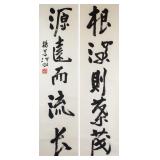 根深則葉茂
源遠而流长